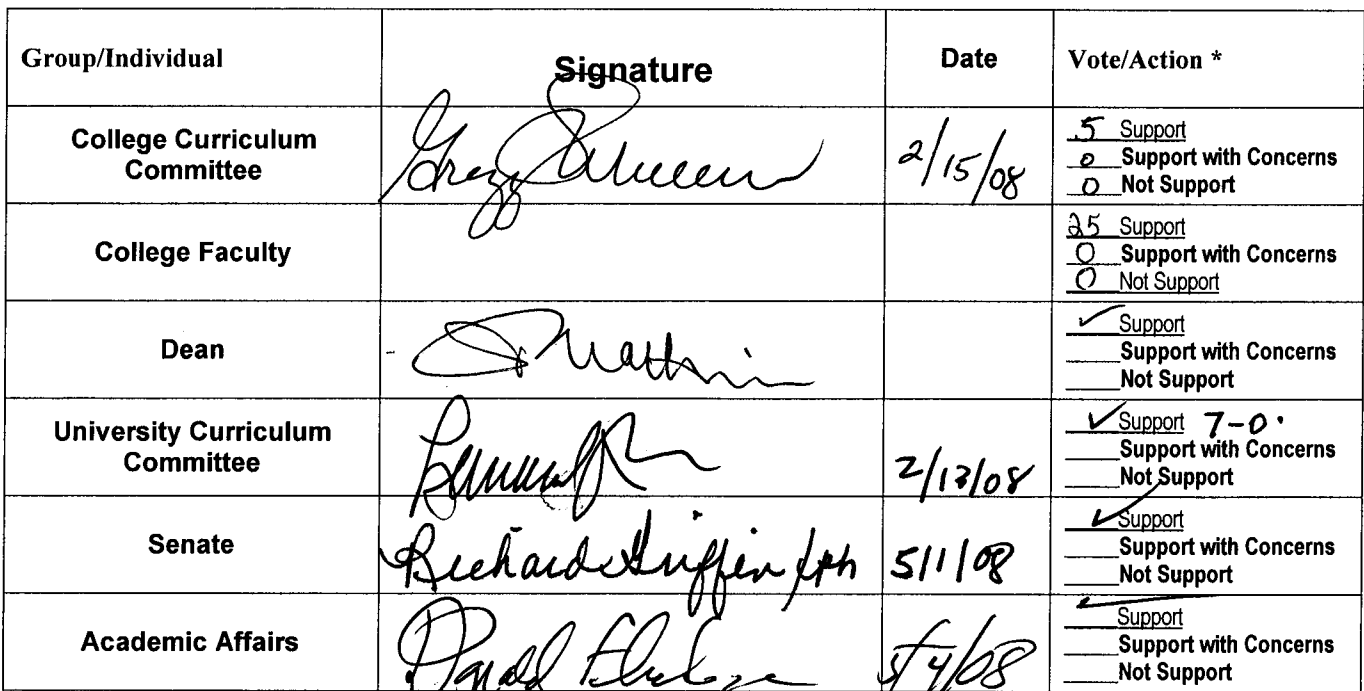 Group/Individual Signature Date Vote/Action *
College Curriculum Committee 2/15/08
5 Support
0 Support with Concerns
0 Not Support
College Faculty
25 Support
0 Support with Concerns
0 Not Support
Dean
✓ Support
Support with Concerns
Not Support
University Curriculum Committee 2/13/08
✓ Support 7-0
Support with Concerns
Not Support
Senate Richard Griffin 5/1/08
✓ Support
Support with Concerns
Not Support
Academic Affairs Donald
✓ Support
Support with Concerns
Not Support